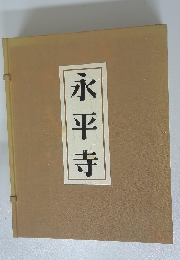 永平寺